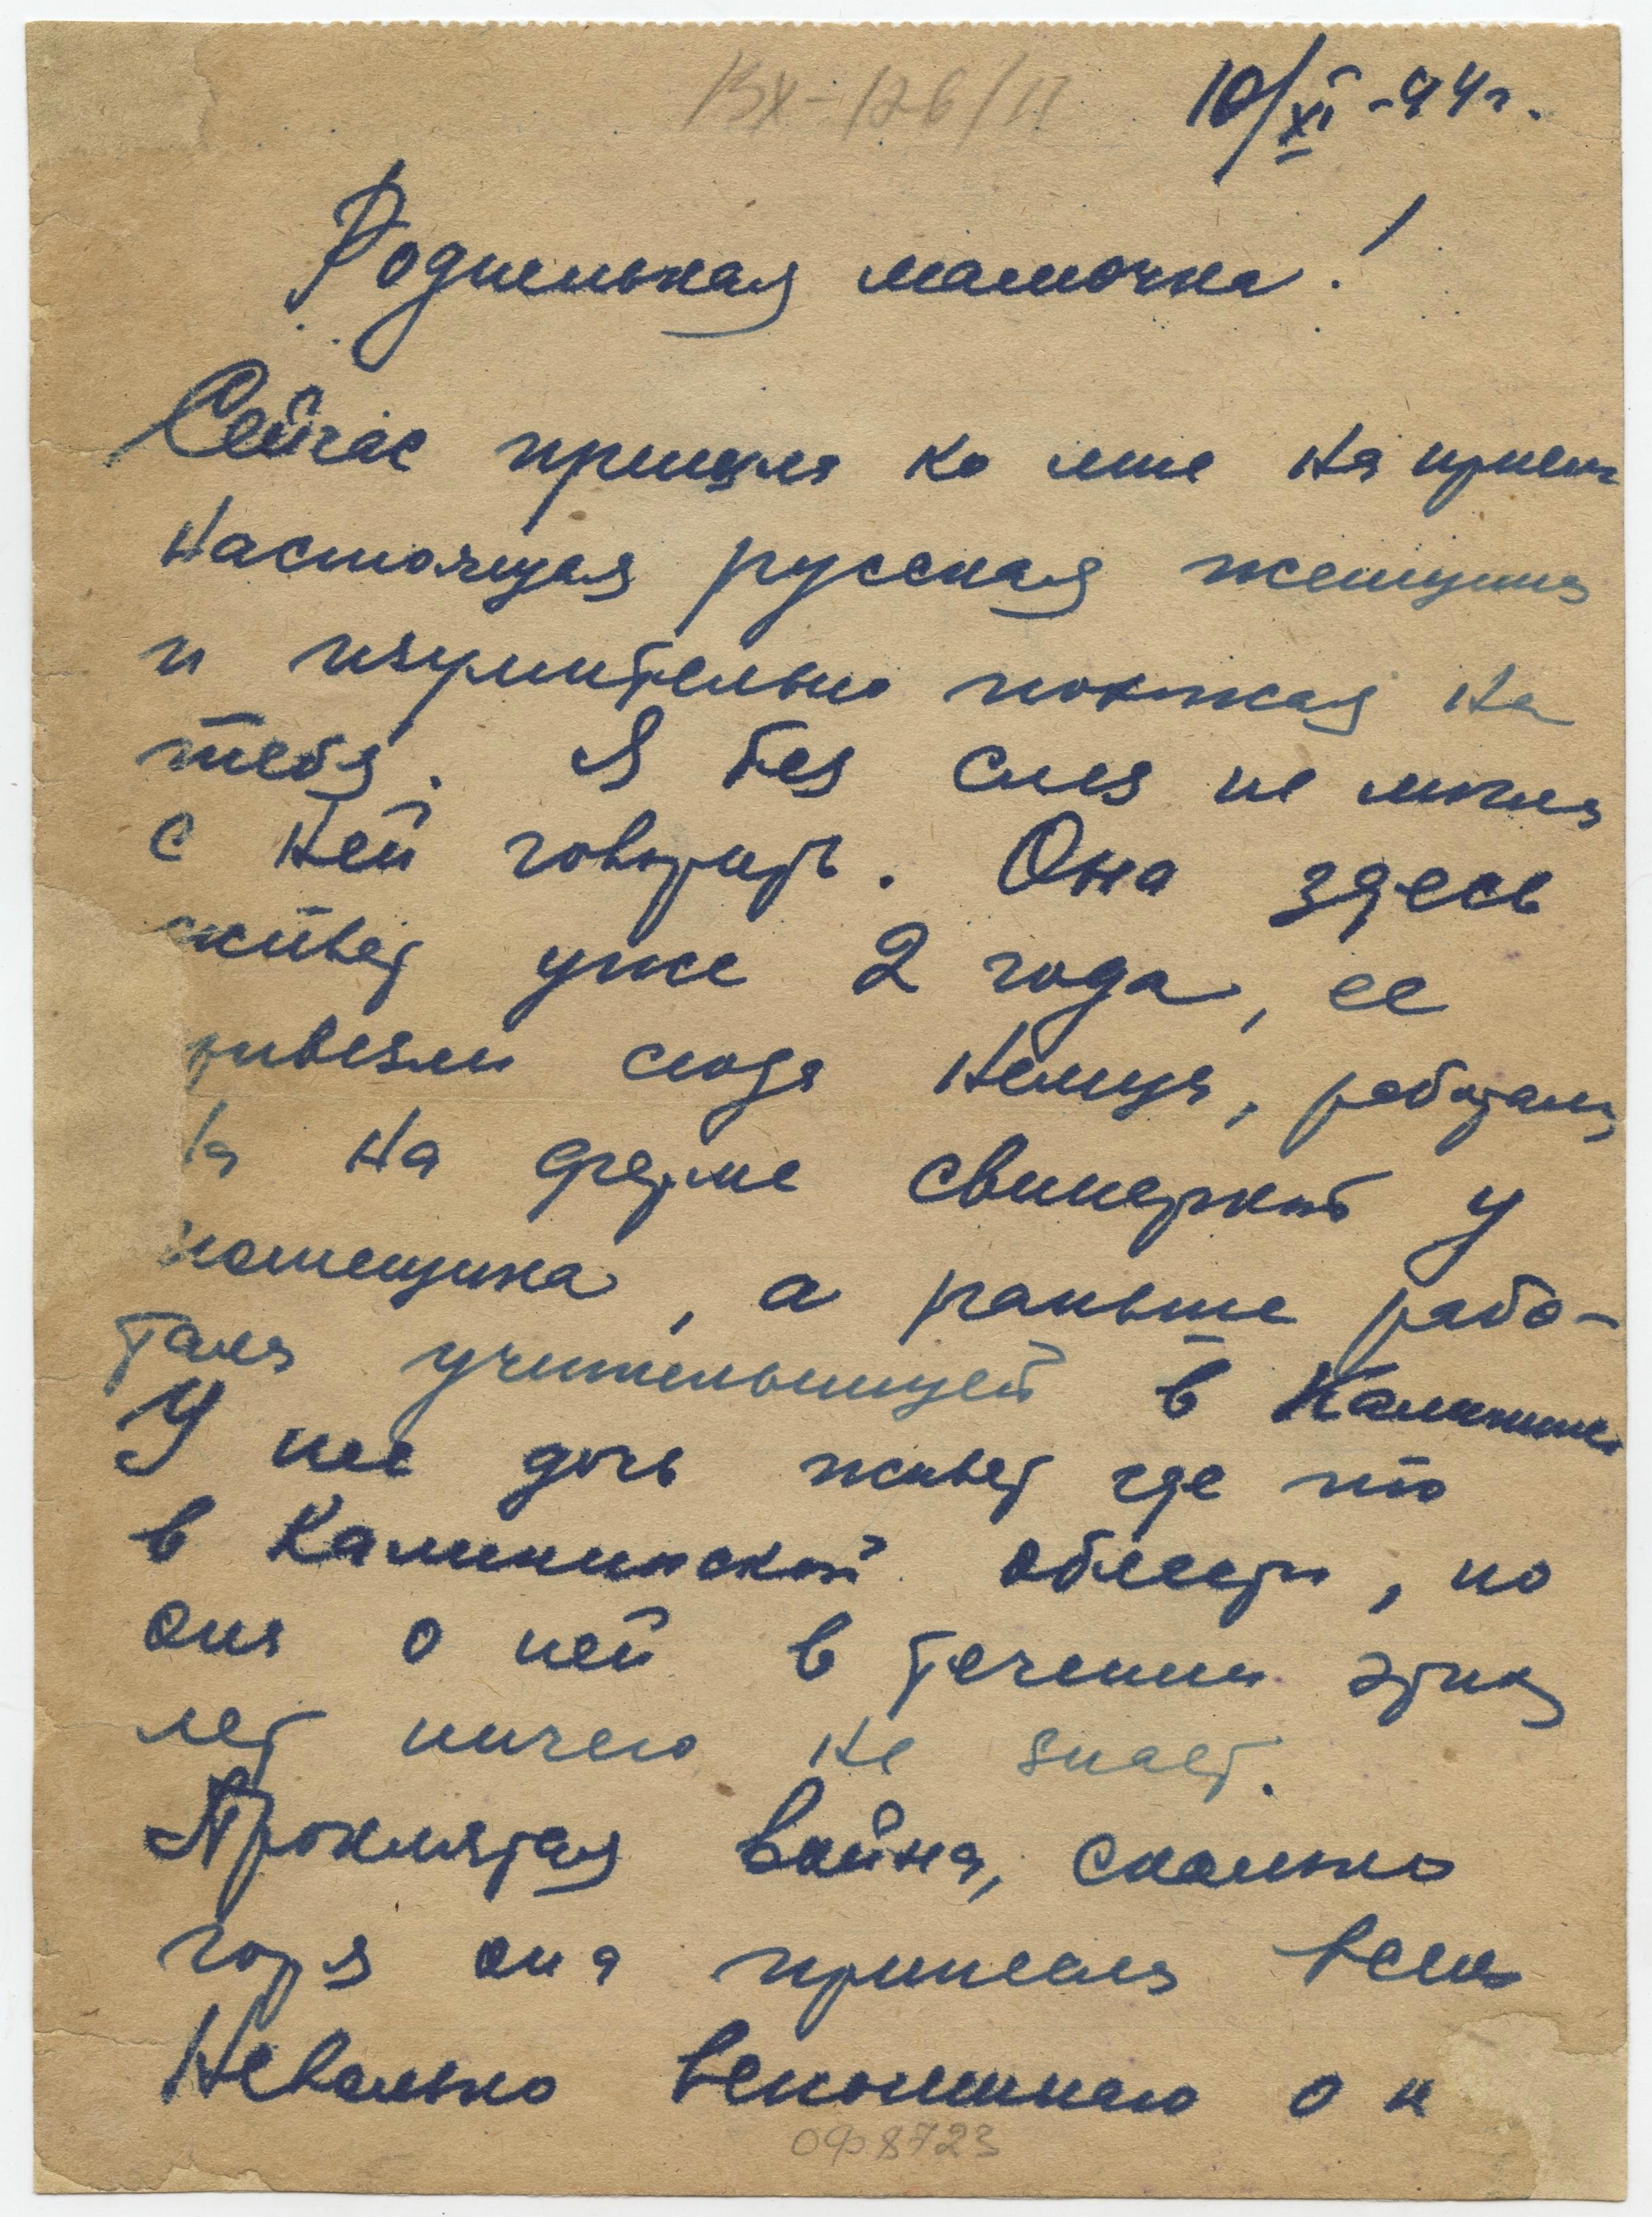 ВХ-126/11
10/XI-44г.
Родненькая мамочка!
Сейчас пришла ко мне на прием
настоящая русская женщина
и изумительно похожая на
тебя. Я без слез не могла
с ней говорить. Она здесь
живет уже 2 года, ее
ривезли сюда немцы, работала
на ферме свинаркой у
помещика, а раньше рабо-
тала учительницей в Калинине
У нее дочь живет где то
в Калининской области, но
она о ней в течении этих
лет ничего не знает.
Проклятая война, сколько
горя она принесла всем
Невольно вспоминаю о н
ОФ8723